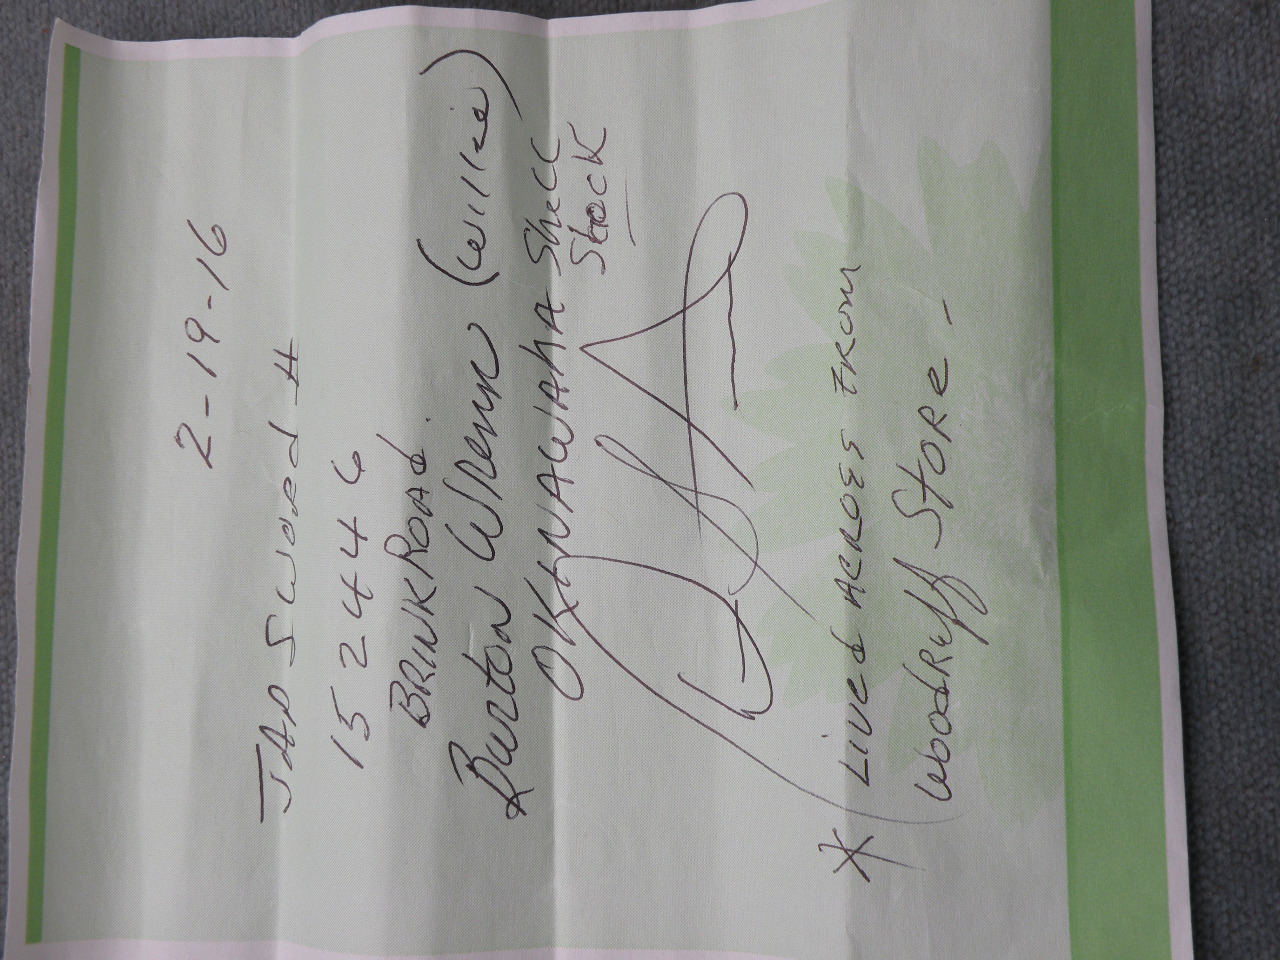 2-19-16
JAP Sword #
152446
BRINK ROAD.
Burton Wrenn (Willie)
OKINAWAHA Shell
Shock
* (Lived ACROSS FROM
Woodruff Store -